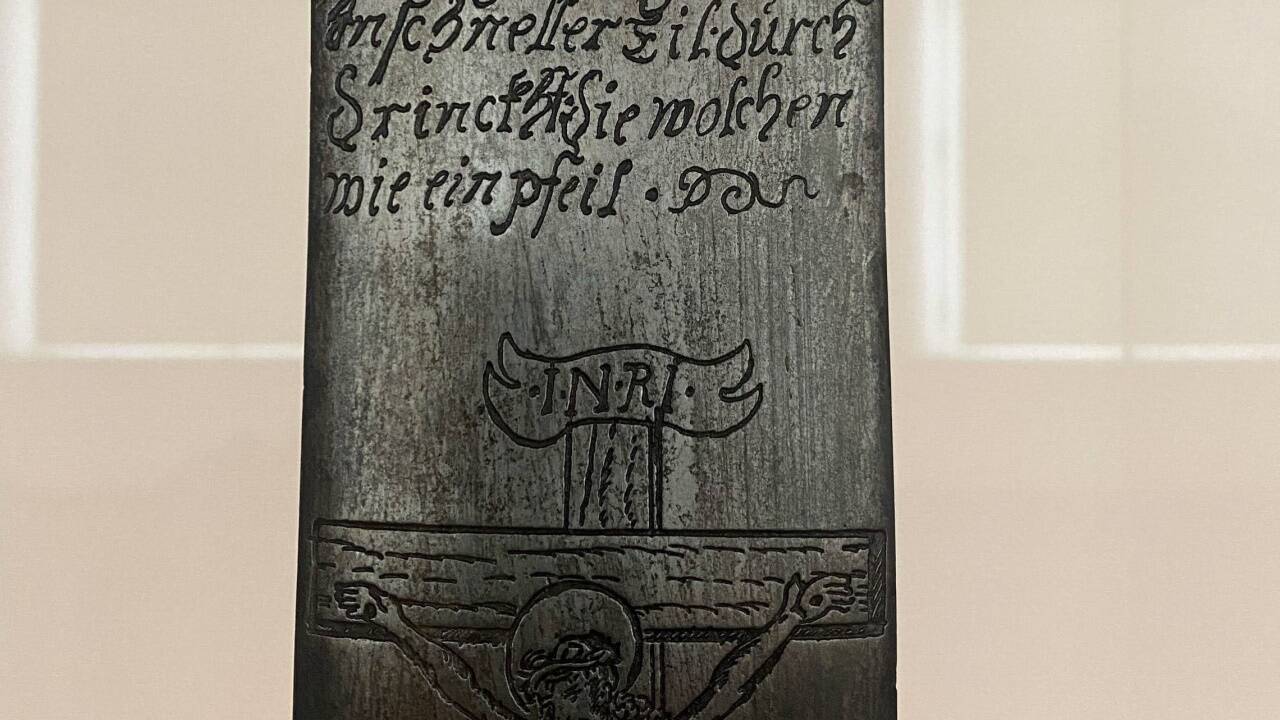 In schneller Eil durch
Drinckht die wolchen
wie ein pfeil .
· I · N · R I ·